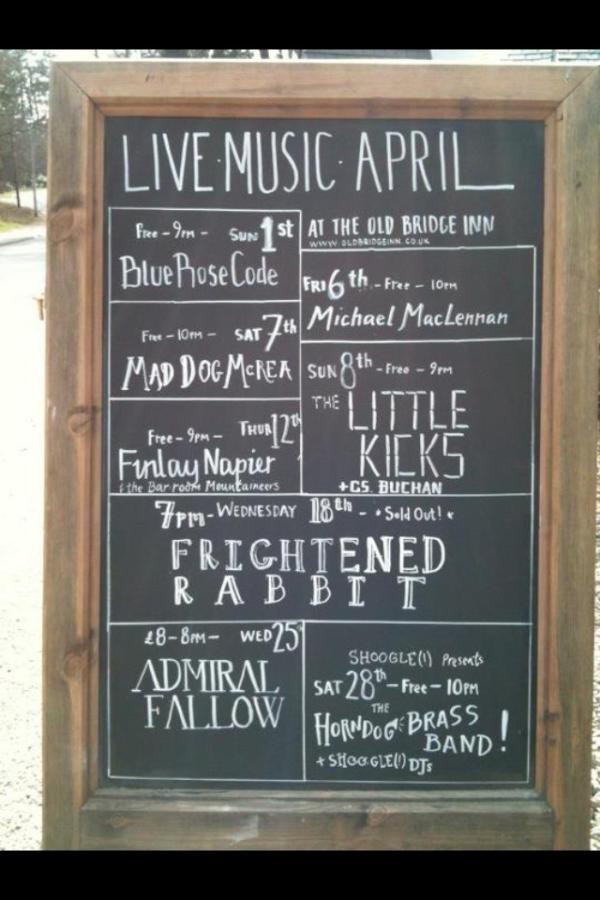 LIVE·MUSIC·APRIL
Free - 9pm - SUN 1st
Blue Rose Code
AT THE OLD BRIDGE INN
WWW.OLDBRIDGEINN.CO.UK
FRI 6th - Free - 10pm
Michael MacLennan
Free - 10pm - SAT 7th
MAD DOG MCREA
SUN 8th - Free - 9pm
THE LITTLE
KICKS
+ GS. BUCHAN
Free - 9pm - THUR 12th
Finlay Napier
& the Bar room Mountaineers
7pm - WEDNESDAY 18th - • Sold Out! •
FRIGHTENED
RABBIT
£8 - 8pm - WED 25th
ADMIRAL
FALLOW
SHOOGLE(!) Presents
SAT 28th - Free - 10pm
THE
HORNDOG BRASS
BAND!
+ SHOOGLE(!) DJs